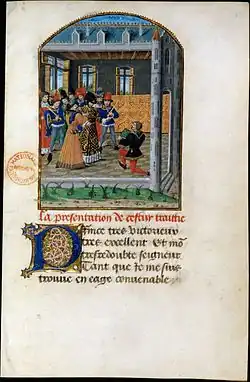 La presentation de cestui traittie
Prince tres victorieux
tres excellent Et mõ
tresredoubte seigneur
Tant que Je me suis
trouue en eage conuenable